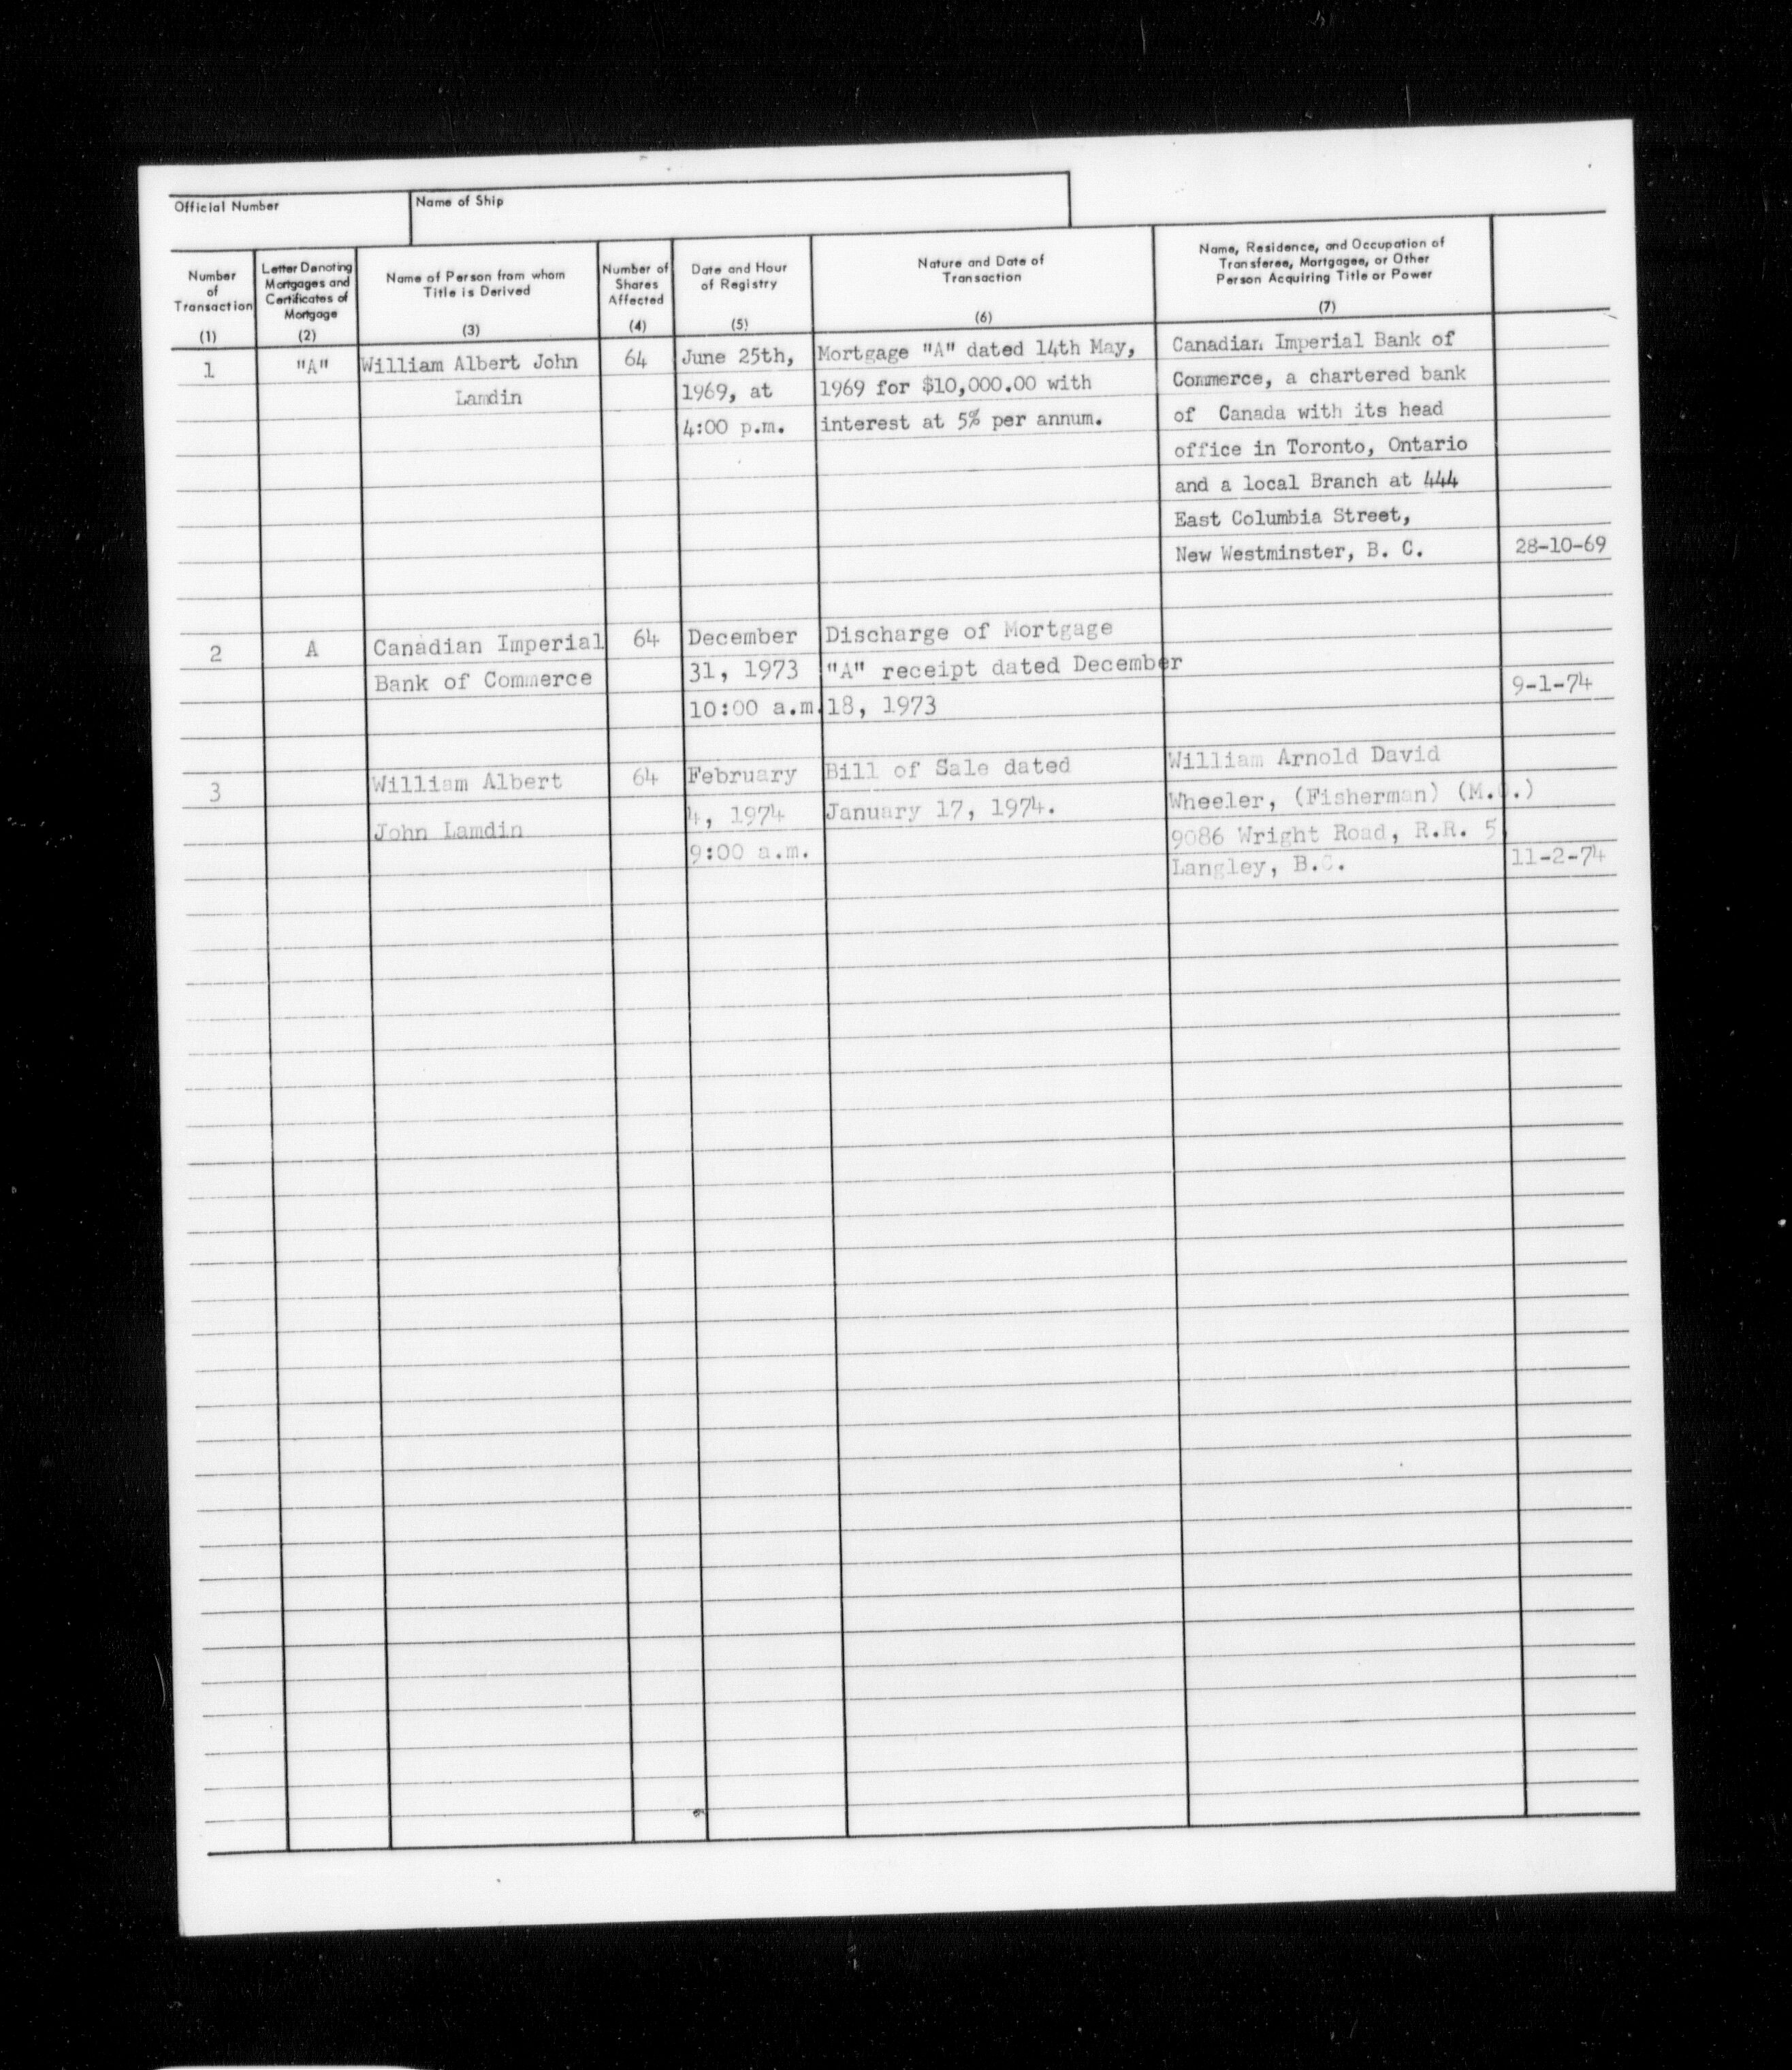 Official Number
Name of Ship
Number
of
Transaction
(1)
Letter Denoting
Mortgages and
Certificates of
Mortgage
(2)
Name of Person from whom
Title is Derived
(3)
Number of
Shares
Affected
(4)
Date and Hour
of Registry
(5)
Nature and Date of
Transaction
(6)
Name, Residence, and Occupation of
Transferee, Mortgagee, or Other
Person Acquiring Title or Power
(7)
1
"A"
William Albert John
Lamdin
64
June 25th,
1969, at
4:00 p.m.
Mortgage "A" dated 14th May,
1969 for $10,000.00 with
interest at 5% per annum.
Canadian Imperial Bank of
Commerce, a chartered bank
of Canada with its head
office in Toronto, Ontario
and a local Branch at 444
East Columbia Street,
New Westminster, B. C.
28-10-69
2
A
Canadian Imperial
Bank of Commerce
64
December
31, 1973
10:00 a.m.
Discharge of Mortgage
"A" receipt dated December
18, 1973
9-1-74
3
William Albert
John Lamdin
64
February
4, 1974
9:00 a.m.
Bill of Sale dated
January 17, 1974.
William Arnold David
Wheeler, (Fisherman)
9086 Wright Road, R.R. 5
Langley, B.C.
11-2-74